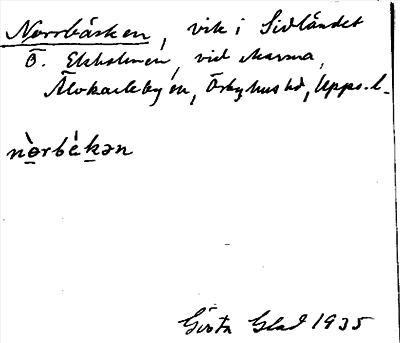 Norrbäcken, vik i Sidländet
Ö. Ekholmen, vid Marma,
Älvkarleby sn, Örbyhus hd, Upps. l.
nòrbèkən
Gösta Glad 1935